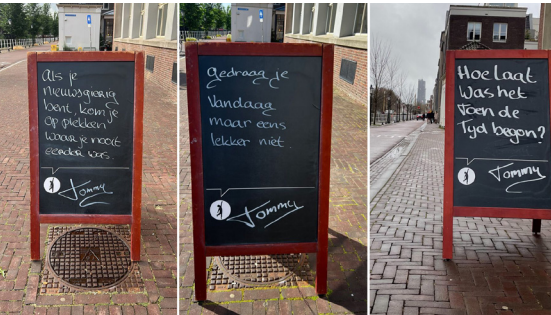 Als je
nieuwsgierig
bent, kom je
op plekken
waar je nooit
eerder was.
Tommy
gedraag je
Vandaag
maar eens
lekker niet.
Tommy
Hoe laat
was het
toen de
Tyd begon?
Tommy